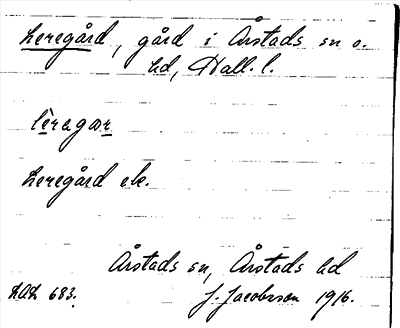 Leregård, gård i Årstads sn o.
hd, Hall. l.
lèragar
Leregård ek.
Årstads sn, Årstads hd
LAL 683. J. Jacobsson 1916.